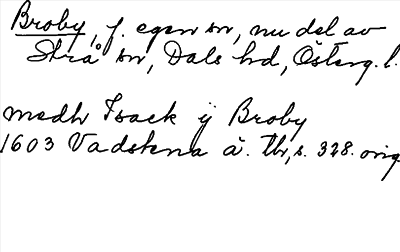 Broby, f. egen sn, nu del av
Strå sn, Dals hd, Österg. l.
medh Isack ÿ Broby
1603 Vadstena ä. tb, s. 328. orig.